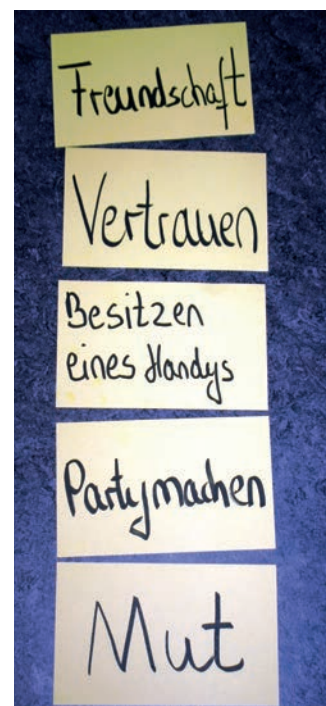 Freundschaft
Vertrauen
Besitzen
eines Handys
Partymachen
Mut